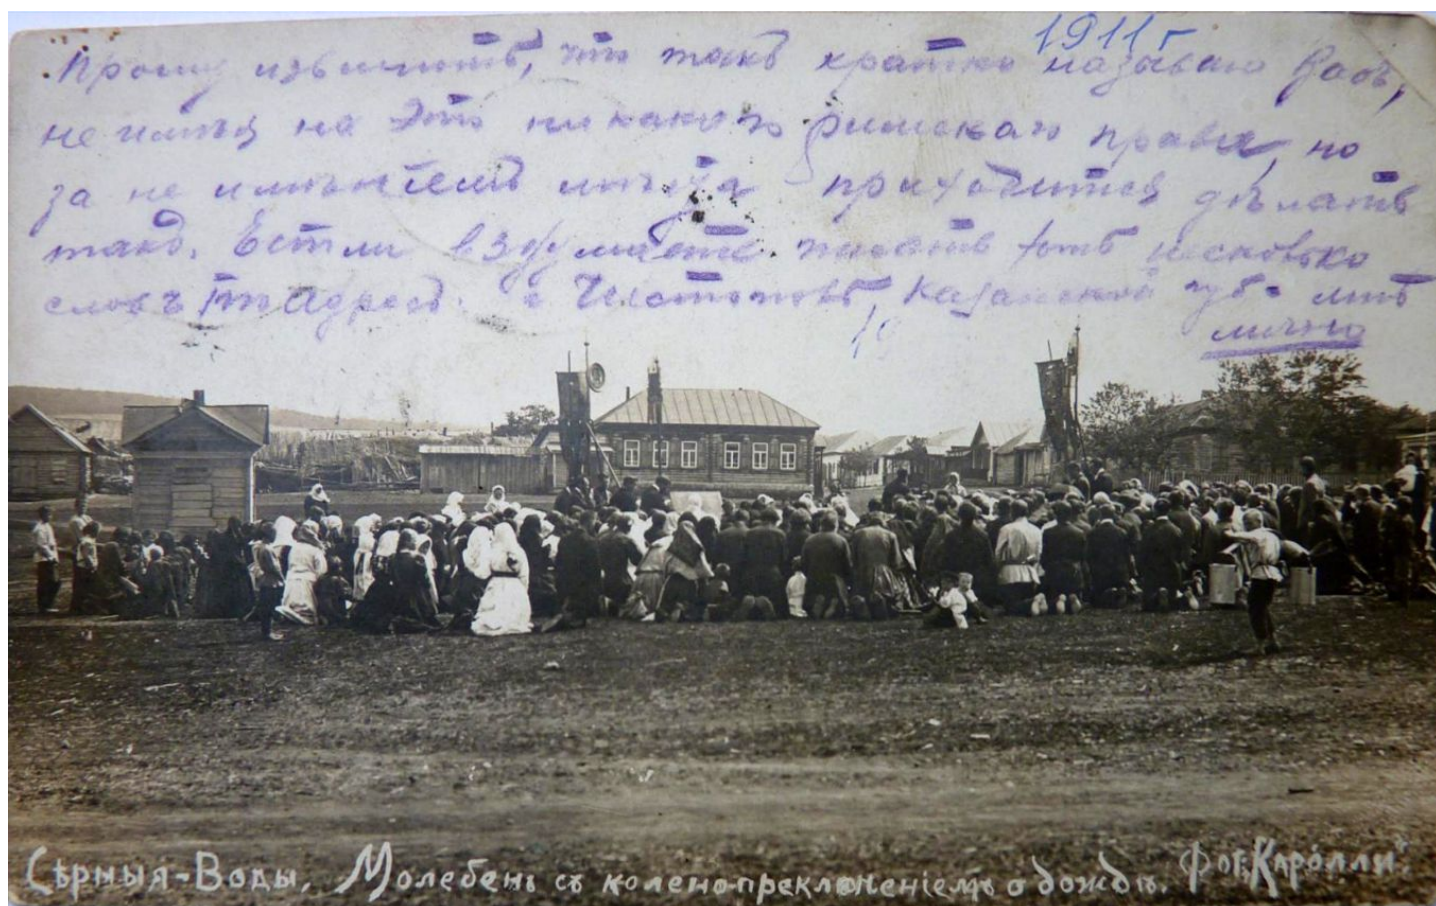 1911 г
Прошу извинить, что такъ кратко называю Васъ,
не имѣя на это никакого римскаго права, но
за не имѣнiемъ мѣста приходится дѣлать
такъ. Естли вздумаете писать хоть несколько
словъ то адресъ: г Чистополь, Казанской губ. мнѣ
лично
Сѣрныя-Воды. Молебенъ съ колено-преклоненiемъ о дождѣ. Фот. "Кароли".